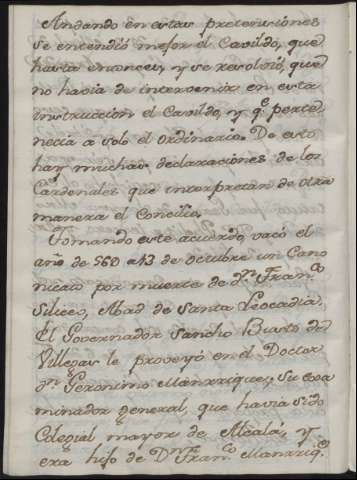 Andando en estas pretensiones
se entendió mejor el Cavildo, que
hasta entonces, y se resolvió, que
no havia de intervenir en esta
instruccion el Cavildo, y q.e perte
necia a solo el ordinario. De esto
hay muchas declaraciones de los
Cardenales que interpretan de otra
manera el Concilio.
Tomando este acuerdo, vacó el
año de 560 a 13 de octubre un Cano
nicato por muerte de d.n Fran.co
Siliceo, Abad de Santa Leocadia.
El Governador Sancho Busto de
Villegas le proveyó en el Doctor
d.n Geronimo Manrrique, su exa
minador general, que havia sido
Colegial mayor de Alcalá, y
era hijo de D.n Fran.co Manrriq.e